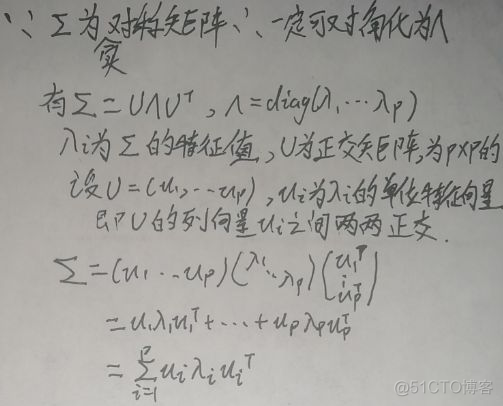 ∵ Σ为实对称矩阵 ∴ 一定可对角化为Λ
有Σ=UΛUᵀ, Λ=diag(λ₁…λp)
λi为Σ的特征值, U为正交矩阵,为p×p的
设U=(u₁,…up), ui为λi的单位特征向量
即U的列向量ui之间两两正交.
Σ=(u₁…up)(λ₁…λp)(u₁ᵀ⋮upᵀ)
=u₁λ₁u₁ᵀ+…+upλpupᵀ
=∑ᵖᵢ₌₁uiλiuiᵀ
@51CTO博客